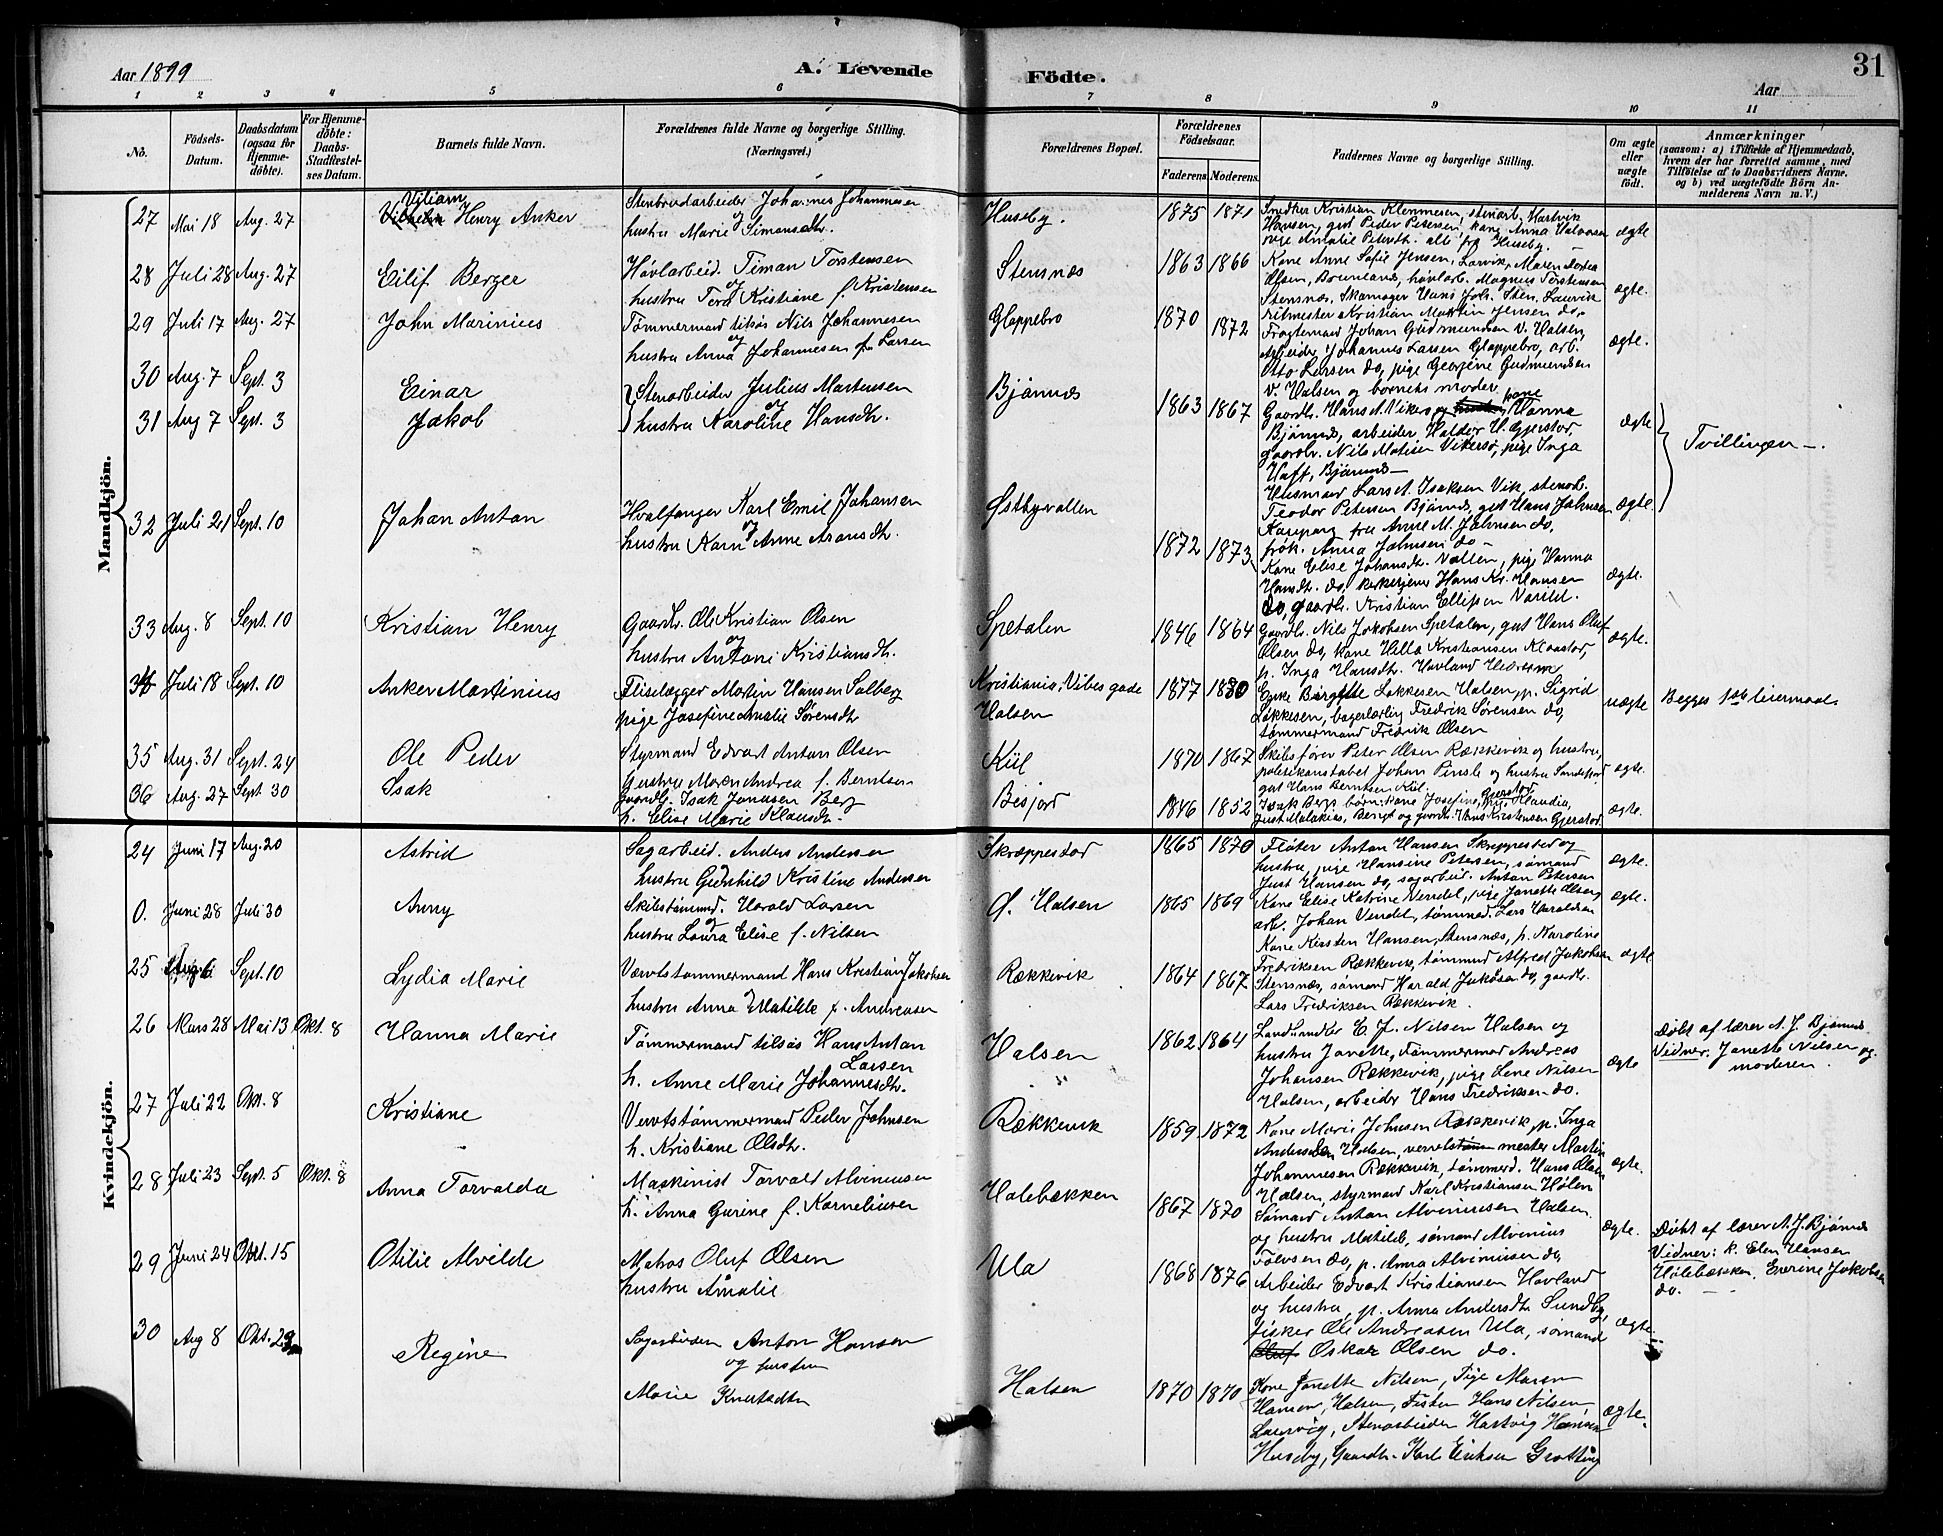 Aar 1899
A. Levende
Födte.
31
Aar
1 2 3 4 5 6 7 8 9 10 11
No.
Födsels-
Datum.
Daabsdatum
(ogsaa for
Hjemme-
döbte).
For Hjemme-
döbte:
Daabs-
Stadfæstel-
ses Datum.
Barnets fulde Navn.
Forældrenes fulde Navne og borgerlige Stilling.
(Næringsvei.)
Forældrenes Bopæl.
Forældrenes
Födselsaar.
Faderens. Moderens.
Faddernes Navne og borgerlige Stilling.
Om ægte
eller
uægte
födt.
Anmærkninger
(saasom: a) i Tilfælde af Hjemmedaab,
hvem der har forrettet samme, med
Tilföielse af to Daabsvidners Navne.
og b) ved uægtefödte Börn An-
melderens Navn m. V.)
Mandkjön.
27 Mai 18 Aug. 27
Viliam
Vilhelm Henry Anker
Stenbrudarbeider Johannes Johannesen
og
hustru Marie Simonsdtr.
Huseby.
1875 1871
Snedker Kristian Klemmesen, stenarb. Hartvik
Hansen, gut Peder Petersen, kone Anna Halvorsen
pige Amalie Petersdt. alle fra Huseby.
ægte
28 Juli 28 Aug. 27
Eilif Berger
Høvlarbeid. Timan Torstensen
og
hustru Tora Kristiane f. Kristensen
Stensnæs
1863 1866
Kone Anne Sofie Jensen, Larvik, Maren Dortea
Olsen, Brunlanes, høvlarb. Magnus Torstensen
Stensnæs, Skomager Hans Joh. Sten, Laurvik
ritmester Kristian Martin Jensen do.
ægte.
29 Juli 17 Aug. 27
John Marinius
Tømmermand tilsøs Nils Johannesen
og
hustru Anna Johannesen f. Larsen
Gloppebro
1870 1872
Fragtemand Johan Gudmundsen v. Halsen,
Arbeider Johannes Larsen Gloppebro, arb.
Otto Larsen do, pige Georgine Gudmundsen
v. Halsen og barnets moder
ægte.
30 Aug. 7 Sept. 3
Einar
31 Aug 7 Sept. 3
Jakob
Stenarbeider Julius Martinsen
og
hustru Karoline Hansdtr.
Bjønnes
1863 1867
kone
Gaardbr. Hans A. Vikersø og hustru Hanna
Bjønnes, arbeider Haldor H. Gjerstad,
gaardbr. Nils Matisen Vikersø, pige Inga
Hoff, Bjønnes —
ægte
Tvillinger —.
32 Juli 21 Sept. 10
Johan Anton
Hvalfanger Karl Emil Johansen
og
hustru Karn Anne Aronsdtr.
Østbyvallen
1872 1873
Husmand Lars A. Isaksen Vik, stenarb.
Teodor Petersen Bjønnes, gut Hans Johnsen
Kaupang fru Anne M. Johnsen do,
frøk. Anna Johnsen do —
Kone Elise Johansdt. Vallen, pige Hanna
Hansdt. do, kirketjener Hans Kr. Hansen
do, gaardbr. Kristian Ellefsen Varild.
ægte.
ægte.
33 Aug. 8 Sept. 10
Kristian Henry
Gaardbr. Ole Kristian Olsen
og
hustru Antoni Kristiansdtr.
Spetalen
1846 1864
Gaardbr. Nils Jakobsen Spetalen, gut Hans Oluf
Olsen do, kone Hella Kristiansen Klaastad,
p. Inga Hansdt. Havland Hedrum
ægte.
34 Juli 18 Sept. 10
Anker Martinius
Fliselægger Martin Hansen Solberg
pige Josefine Amalie Sørensdt
Kristiania, Vibes gade
Halsen
1877 1880
Enke Birgitte Løkkesen Halsen, p. Sigrid
Løkkesen, bagerlærling Fredrik Sørensen do,
tømmermand Fredrik Olsen
uægte
Begges 1ste leiermaal
35 Aug. 31 Sept. 24
Ole Peder
Styrmand Edvart Antan Olsen
hustru Maren Andrea f. Berntsen
Kiil
1870 1867
Skibsfører Peter Olsen Rækkevik og hustru,
politikonstabel Johan Pinsle og hustru Sandefjord
gut Hans Berntsen Kiil.
ægte.
36 Aug. 27 Sept 30
Isak
Gaardbr. Isak Jonasen Berg
h. Elise Marie Klausdtr.
Besjord
1846 1852
Isak Bergs børn: kone Josefine, Gjerstad, pige Klaudia,
Just Malakias, Bengt og gaardbr. Hans Kristensen Gjerstad.
ægte.
Kvindekjön.
24 Juni 17 Aug. 20
Astrid
Sagarbeid. Anders Andersen
hustru Gunhild Kristine Andersen
Skræppestad
1865 1870
Fløter Anton Hansen Skreppestad og
hustru, pige Hansine Petersen, sømand
Just Hansen do, sagarbeid. Antan Petersen
ægte.
0. Juni 28 Juli 30
Anny
Skibstømmd. Harald Larsen
og
hustru Laura Elise f. Nilsen
Ø. Halsen
1865 1869
Kone Elise Katrine Vendel, pige Janette Olsen
arb. Johan Vendel, tømmd. Lars Haraldsen
ægte.
25 Aug. 6 Sept. 10
Lydia Marie
Værvtstømmermand Hans Kristian Jakobsen
hustru Anna Matilde f. Andreasen
Rækkevik
1864 1867
Kone Kirsten Hansen, Stensnæs, p. Karoline
Fredriksen Rækkevik, tømmd Alfred Jakobsen
Stensnæs, sømand Harald Jakobsen do, gaardbr.
Lars Fredriksen Rækkevik.
ægte
26 Mars 28 Mai 13 Okt. 8
Hanna Marie
Tømmermand tilsøs Hans Antan
Larsen
h. Anne Marie Johannesdtr.
Halsen
1862 1864
Landhandler E. J. Nilsen Halsen og
hustru Janette, Tømmermand Andreas
Johansen Rækkevik, pige Lene Nilsen
Halsen, arbeider Hans Fredriksen do.
ægte
Døbt af lærer A. J. Bjønnes
Vidner: Janette Nilsen og
moderen.
27 Juli 22 Okt. 8
Kristiane
Værvtstømmermand Peder Johnsen
h. Kristiane Olsdtr.
Rækkevik
1859 1872
Kone Marie Johnsen Rækkevik, p. Inga
Andersen Halsen, værvtstøm mester Martin
Johannesen Rækkevik, tømmerd. Hans Olsen
Halsen, styrmand Karl Kristiansen Hølen
ægte.
28 Juli 23 Sept. 5 Okt. 8
Anna Torvalda
Maskinist Torvald Alviniusen
h. Anna Gurine f. Korneliusen
Holebækken
1867 1870
Sømand Antan Alviniusen Halsen
og hustru Matilde, sømand Alvinius
Tolvsen do, p. Anna Alviniusen do,
ægte.
Døbt af lærer A. J. Bjønnes
Vidner: k. Elen Hansen
Holebækken, Everine Jakobsen
do. —
29 Juni 24 Okt. 15
Otilie Alvilde
Matros Oluf Olsen
hustru Amalie
Ula
1868 1876
Arbeider Edvart Kristiansen Havland
og hustru, p. Anna Andersdtr Sundby,
fisker Ole Andreasen Ula, sømand
Oluf Oskar Olsen do.
ægte
30 Aug 8 Okt. 29
Regine
Sagarbeider Anton Hansen
og hustru
Marie Knutsdtr
Halsen
1870 1870
Kone Janette Nilsen, Pige Maren
Hansen, Halsen, Fisker Hans Nilsen,
Laurvig, Stenarbeider Hartvig Hansen
Huseby, Gaardbr. Karl Eriksen Grotting
ægte.